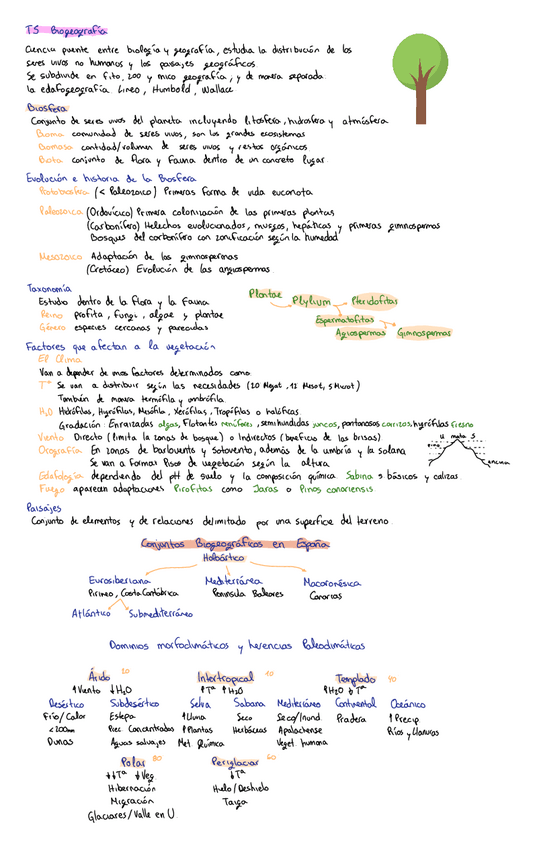 T5 Biogeografía
Ciencia puente entre biología y geografía, estudia la distribución de los
seres vivos no humanos y los paisajes geográficos.
Se subdivide en fito, zoo y mico geografía, y de manera separada
la edafogeografía. Lineo, Humbold, Wallace
Biosfera
Conjunto de seres vivos del planeta incluyendo litosfera, hidrosfera y atmósfera
Bioma comunidad de seres vivos, son los grandes ecosistemas
Biomasa cantidad/volumen de seres vivos y restos orgánicos
Biota conjunto de flora y fauna dentro de un concreto lugar
Evolución e historia de la Biosfera
Protobiosfera (< Paleozoico) Primeras forma de vida eucariota
Paleozoica (Ordovícico) Primera colonización de las primeras plantas
(Carbonífero) Helechos evolucionados, musgos, hepáticas y primeras gimnospermas
Bosques del carbonífero con zonificación según la humedad
Mesozoico Adaptación de las gimnospermas
(Cretáceo) Evolución de las angiospermas
Taxonomía
Estudio dentro de la flora y la fauna
Reino profita, fungi, algae y plantae
Género especies cercanas y parecidas
Plantae Phylium Pteridofitas
Espermatofitas
Agiospermas Gimnospermas
Factores que afectan a la vegetación
El Clima
Van a depender de unos factores determinados como
Tª Se van a distribuir según las necesidades (20 Megat, 12 Mesot, 5 Microt)
También de manera termófila y umbrófila
H₂O Hidrófilas, Higrófilas, Mesófila, Xerófilas, Tropófilas o halóficas.
Gradación: Enraizadas algas, Flotantes nenúfares, semihundidas juncos, pantanosas carrizos, hygrófilas fresno
Viento Directo (limita la zonas de bosque) o Indirectos (beneficio de las brisas)
Orografía En zonas de barlovento y sotavento, además de la umbría y la solana
Se van a formar Pisos de vegetación según la altura
U mata S
encina
Edafología dependiendo del pH de suelo y la composición química Sabina → básicos y calizas
Fuego aparecen adaptaciones Pirofitas como Jaras o Pinos canariensis
Paisajes
Conjunto de elementos y de relaciones delimitado por una superficie del terreno.
Conjuntos Biogeográficos en España
Holoártico
Eurosiberiana Mediterránea Macaronésica
Pirineo, Costa Cantábrica Península Baleares Canarias
Atlántico Submediterráneo
Dominios morfoclimáticos y herencias Paleoclimáticas
Árido 20 Intertropical 10 Templado 40
↑Viento ↓H₂O ↑Tª ↑H₂O ↑H₂O ↓Tª
Desértico Subdesértico Selva Sabana Mediterráneo Continental Oceánico
Frío/Calor Estepa ↑Lluvia Seco Seco/Inund. Pradera ↑Precip
<200mm Prec. Concentradas ↑Plantas Herbáceas Apalachense Ríos y llanuras
Dunas Aguas salvajes Met. Química Veget. humana
Polar 80 Periglaciar 60
↓↓Tª ↓Veg. ↓Tª
Hibernación Hielo/Deshielo
Migración Taiga
Glaciares/Valle en U